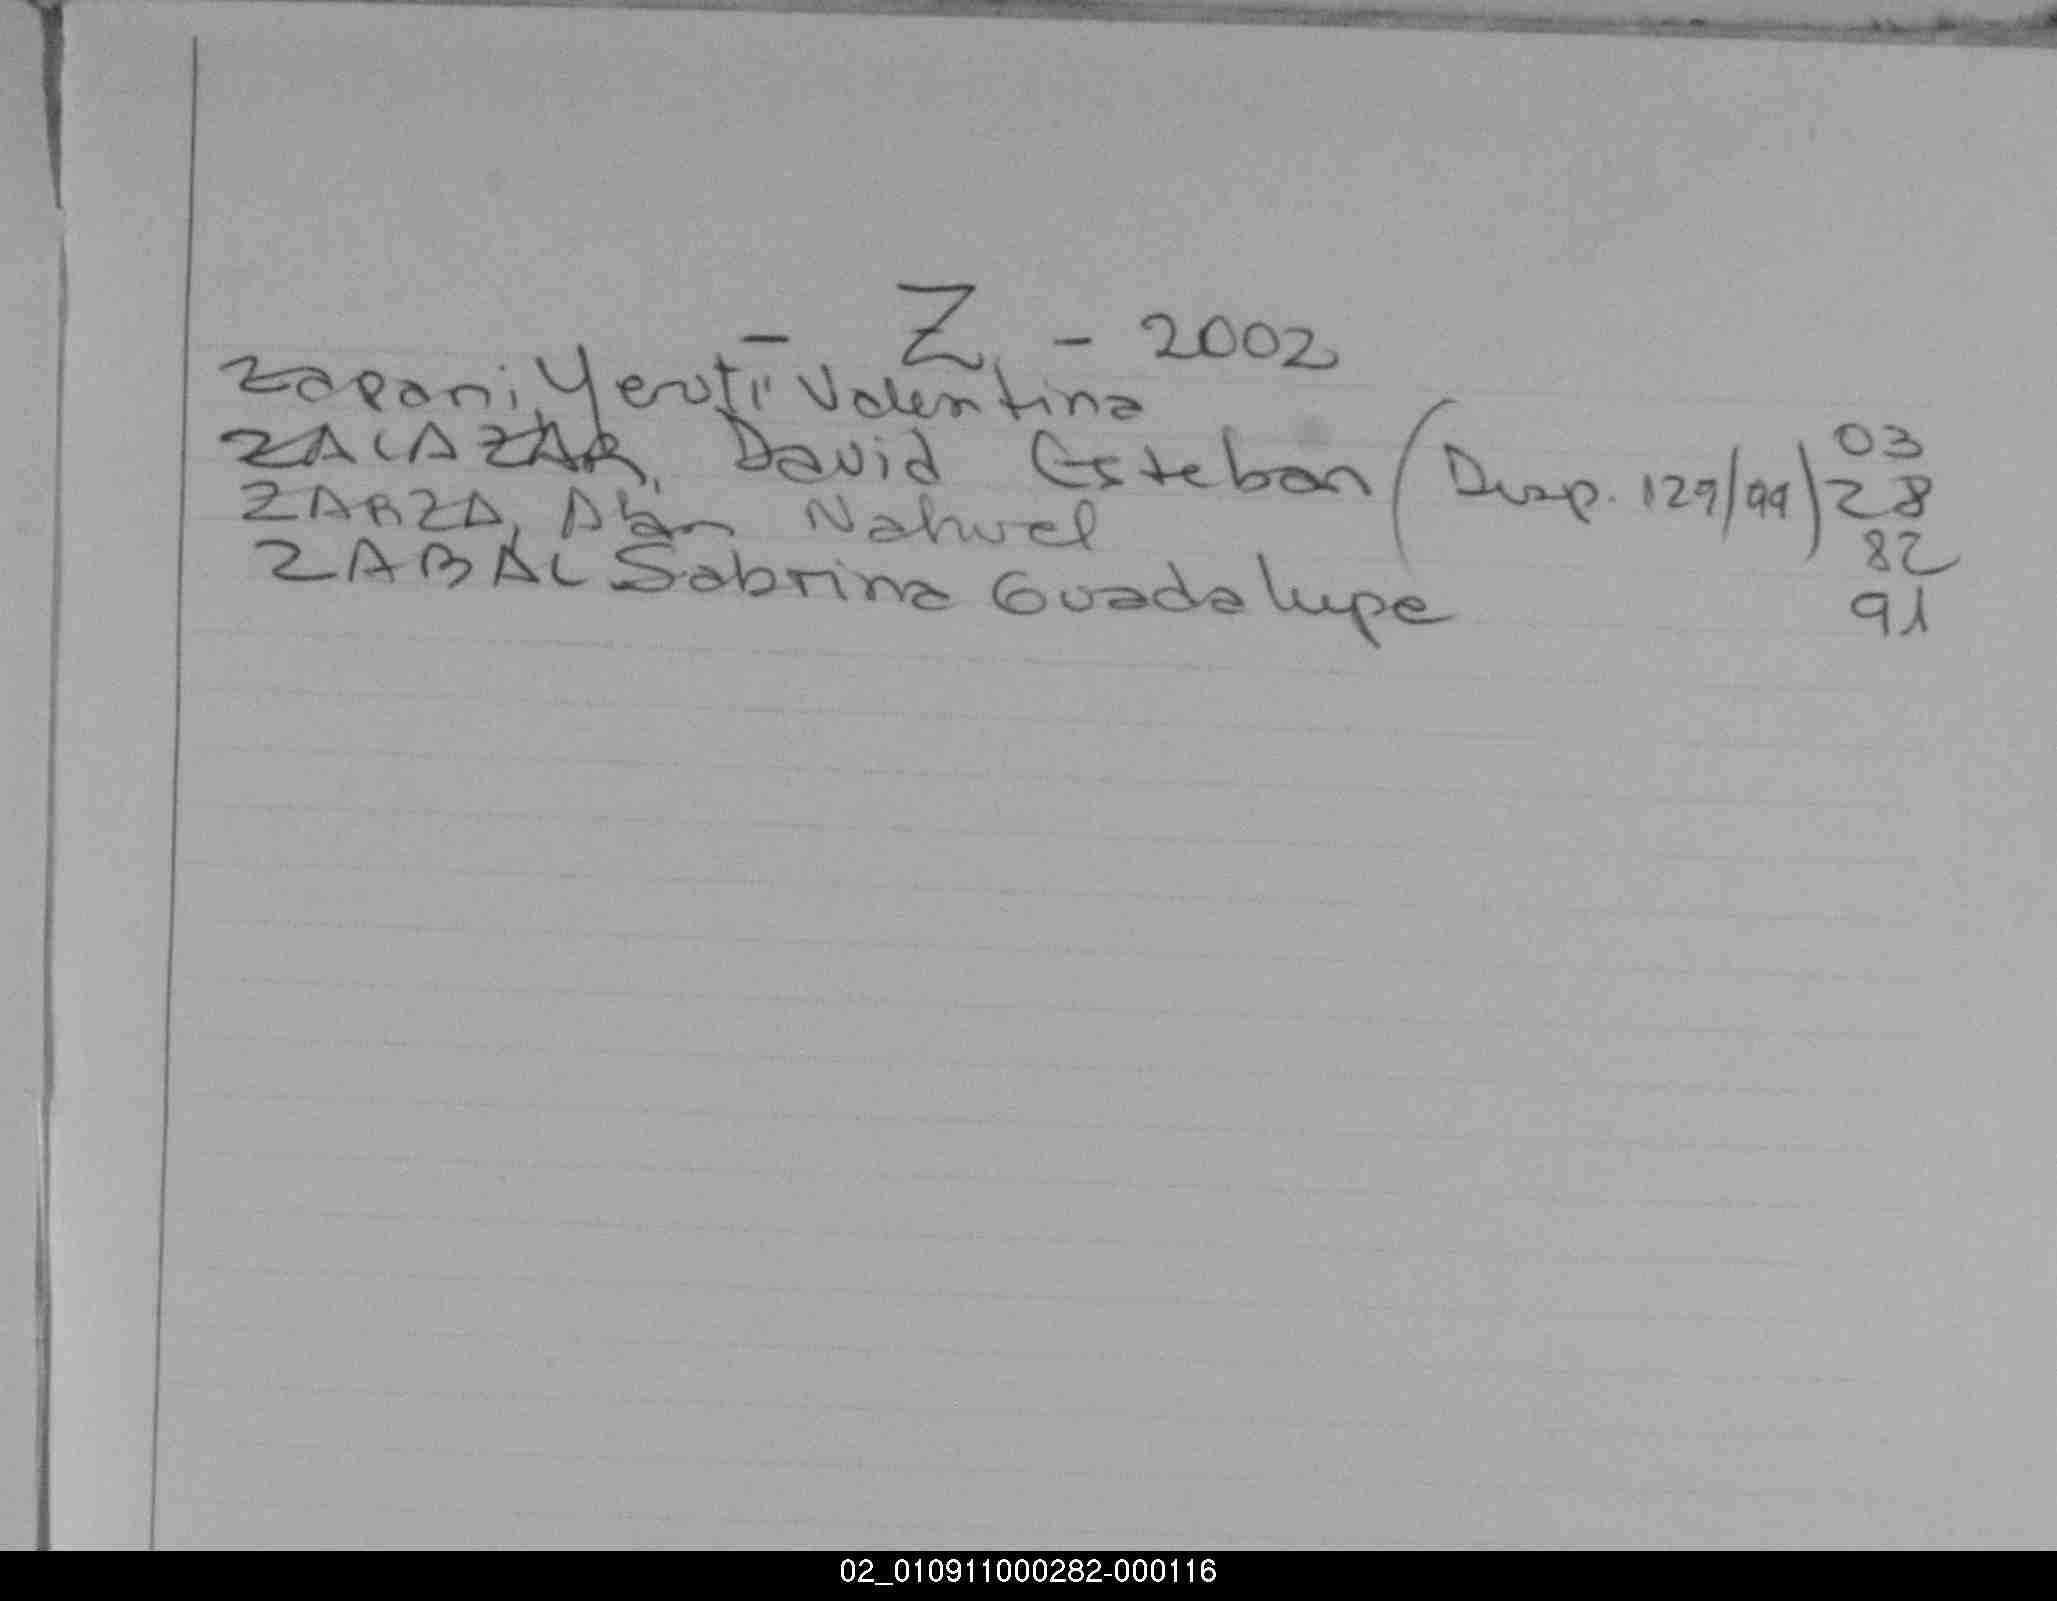 - Z - 2002
Zapani, Yerutí Valentina 03
ZALAZAR, David Esteban (Disp. 129/99) 28
ZARZA, Alan Nahuel 82
ZABAL Sabrina Guadalupe 91
02_010911000282-000116